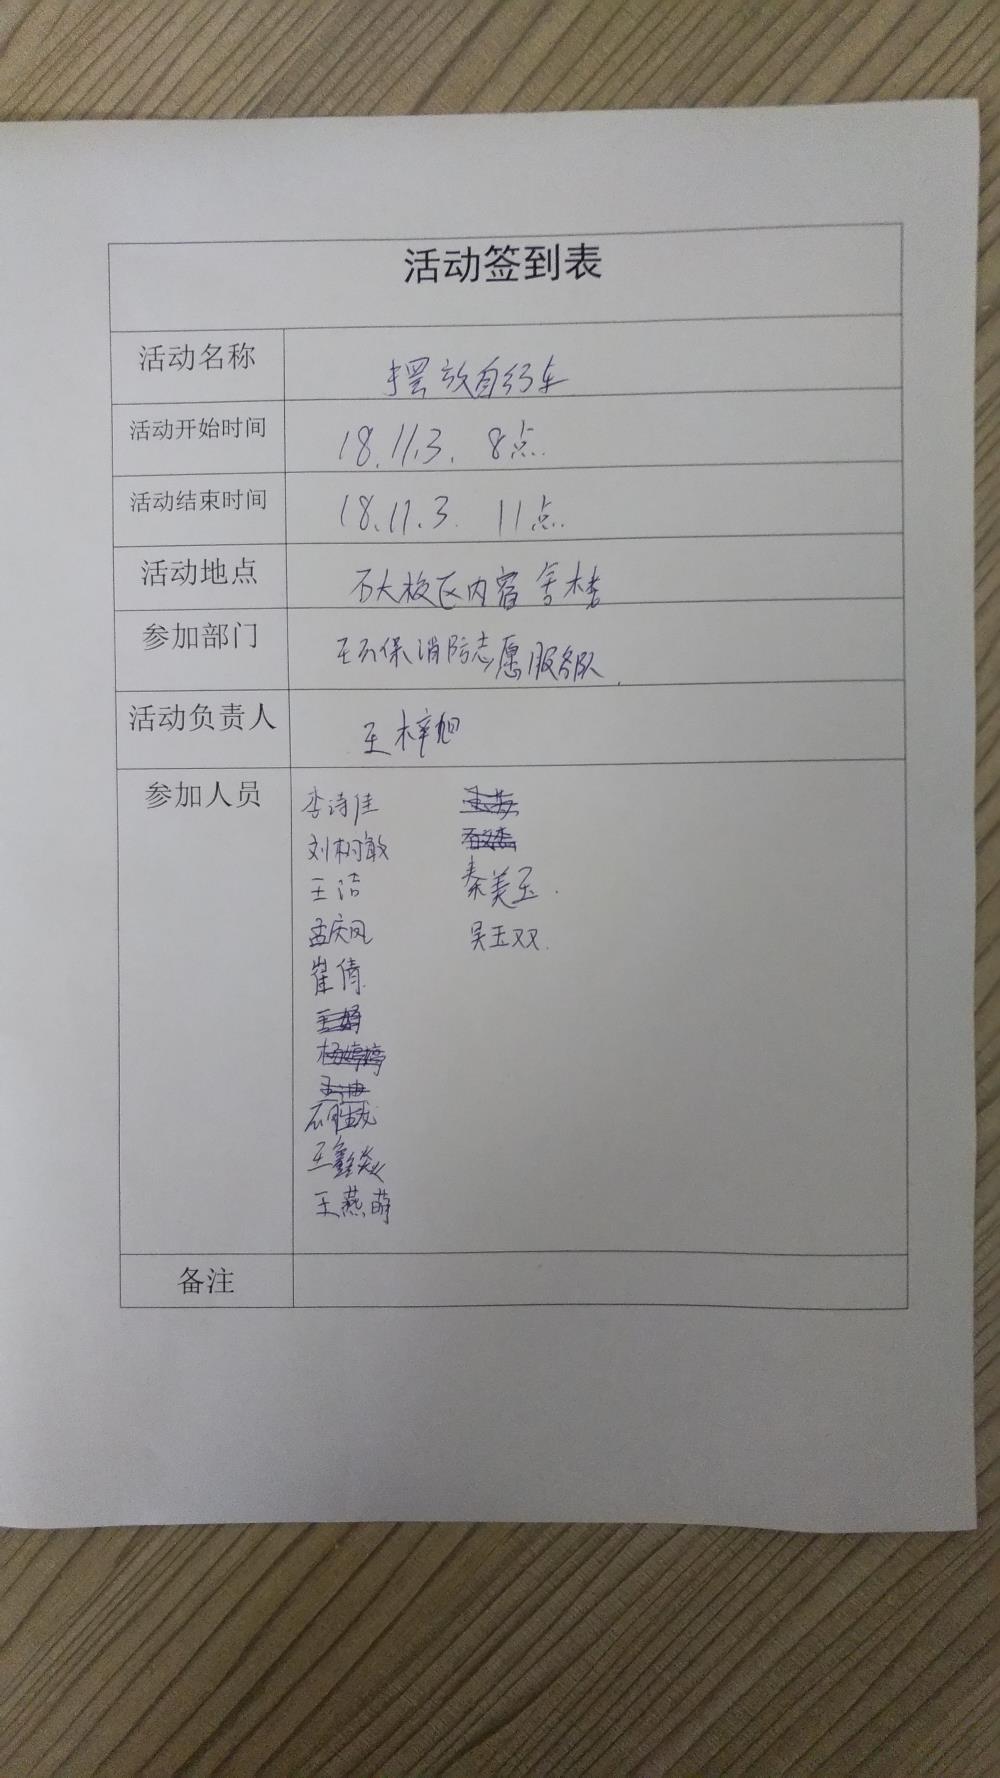 活动签到表
活动名称 摆放自行车
活动开始时间 18.11.3. 8点.
活动结束时间 18.11.3. 11点.
活动地点 石大校区内宿舍楼
参加部门 环保消防志愿服务队.
活动负责人 王梓旭
参加人员
李诗佳
刘树敏
王洁
孟庆凤
崔倩
杨婷婷
石胜龙
王鑫焱
王燕萌
秦美玉.
吴玉双.
备注